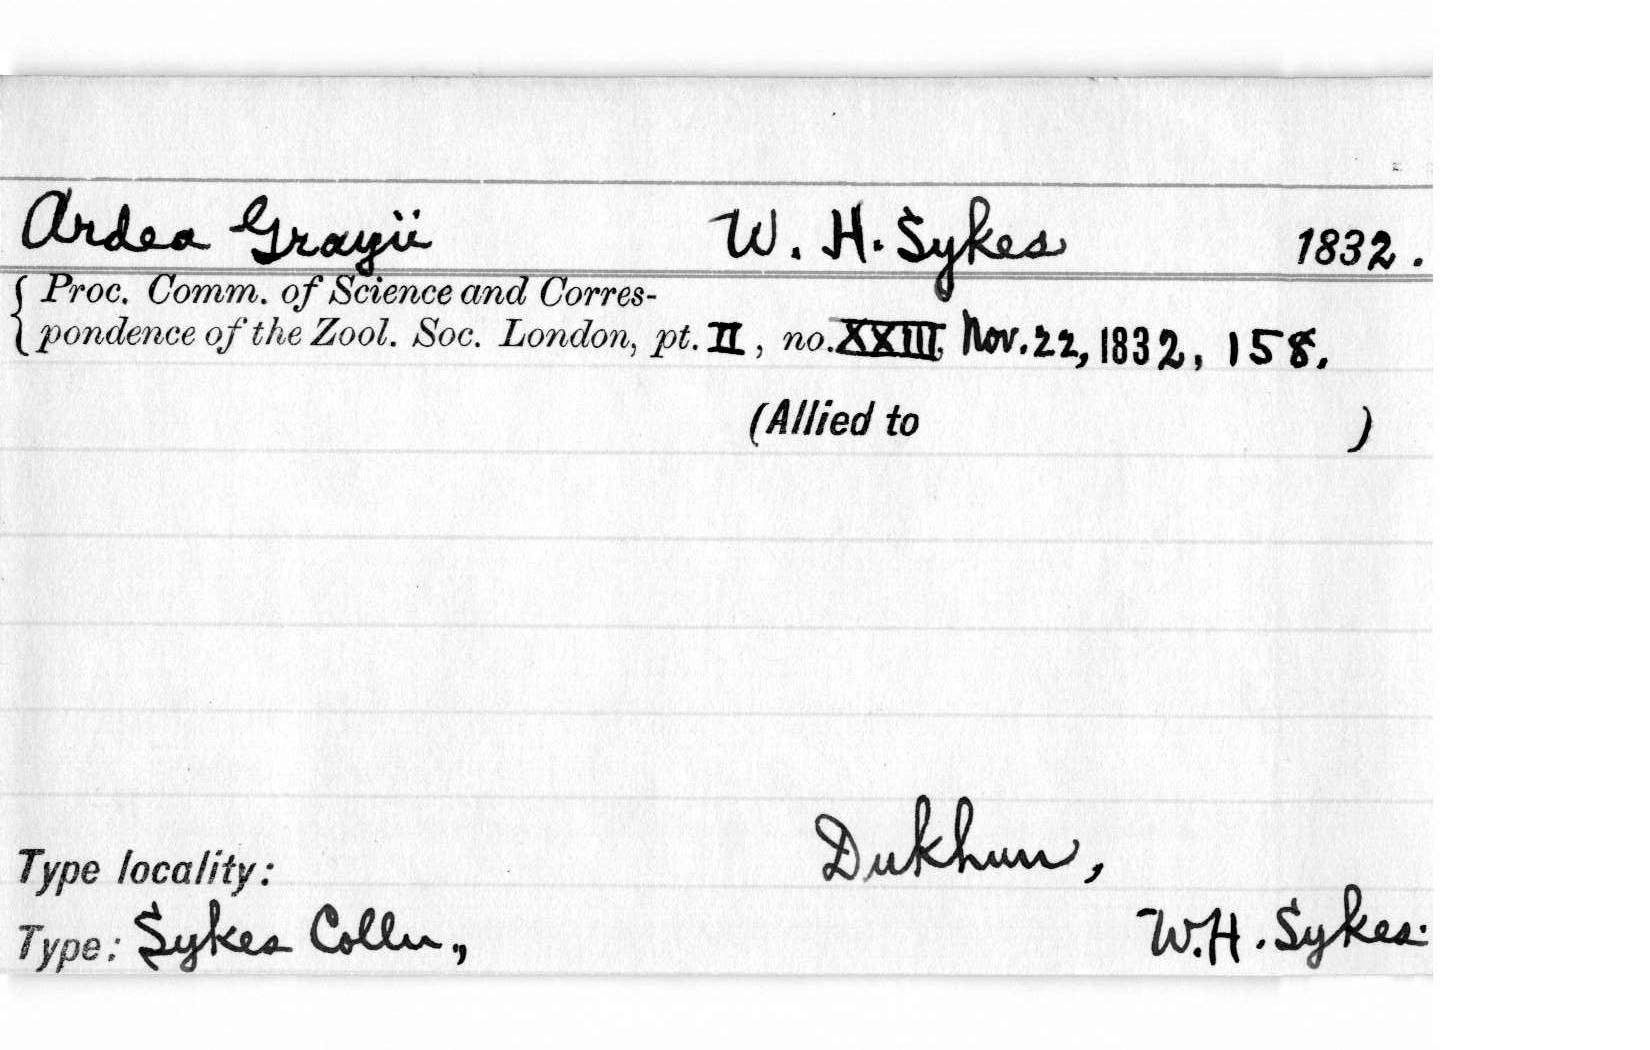 Ardea Grayii W. H. Sykes 1832.
Proc. Comm. of Science and Corres-
pondence of the Zool. Soc. London, pt. II, no. XXIII, Nov. 22, 1832, 158.
(Allied to )
Type locality: Dukhun,
Type: Sykes Colln., W. H. Sykes.